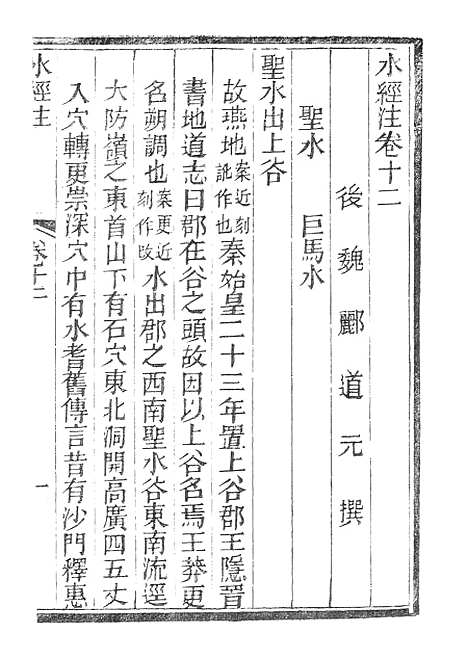 水經注卷十二
後魏酈道元撰
聖水　巨馬水
聖水出上谷
故燕地案近刻訛作也秦始皇二十三年置上谷郡王隱晉
書地道志曰郡在谷之頭故因以上谷名焉王莽更
名朔調也案更近刻作改水出郡之西南聖水谷東南流逕
大防嶺之東首山下有石穴東北洞開高廣四五丈
入穴轉更崇深穴中有水耆舊傳言昔有沙門釋惠
水經注　卷十二　一